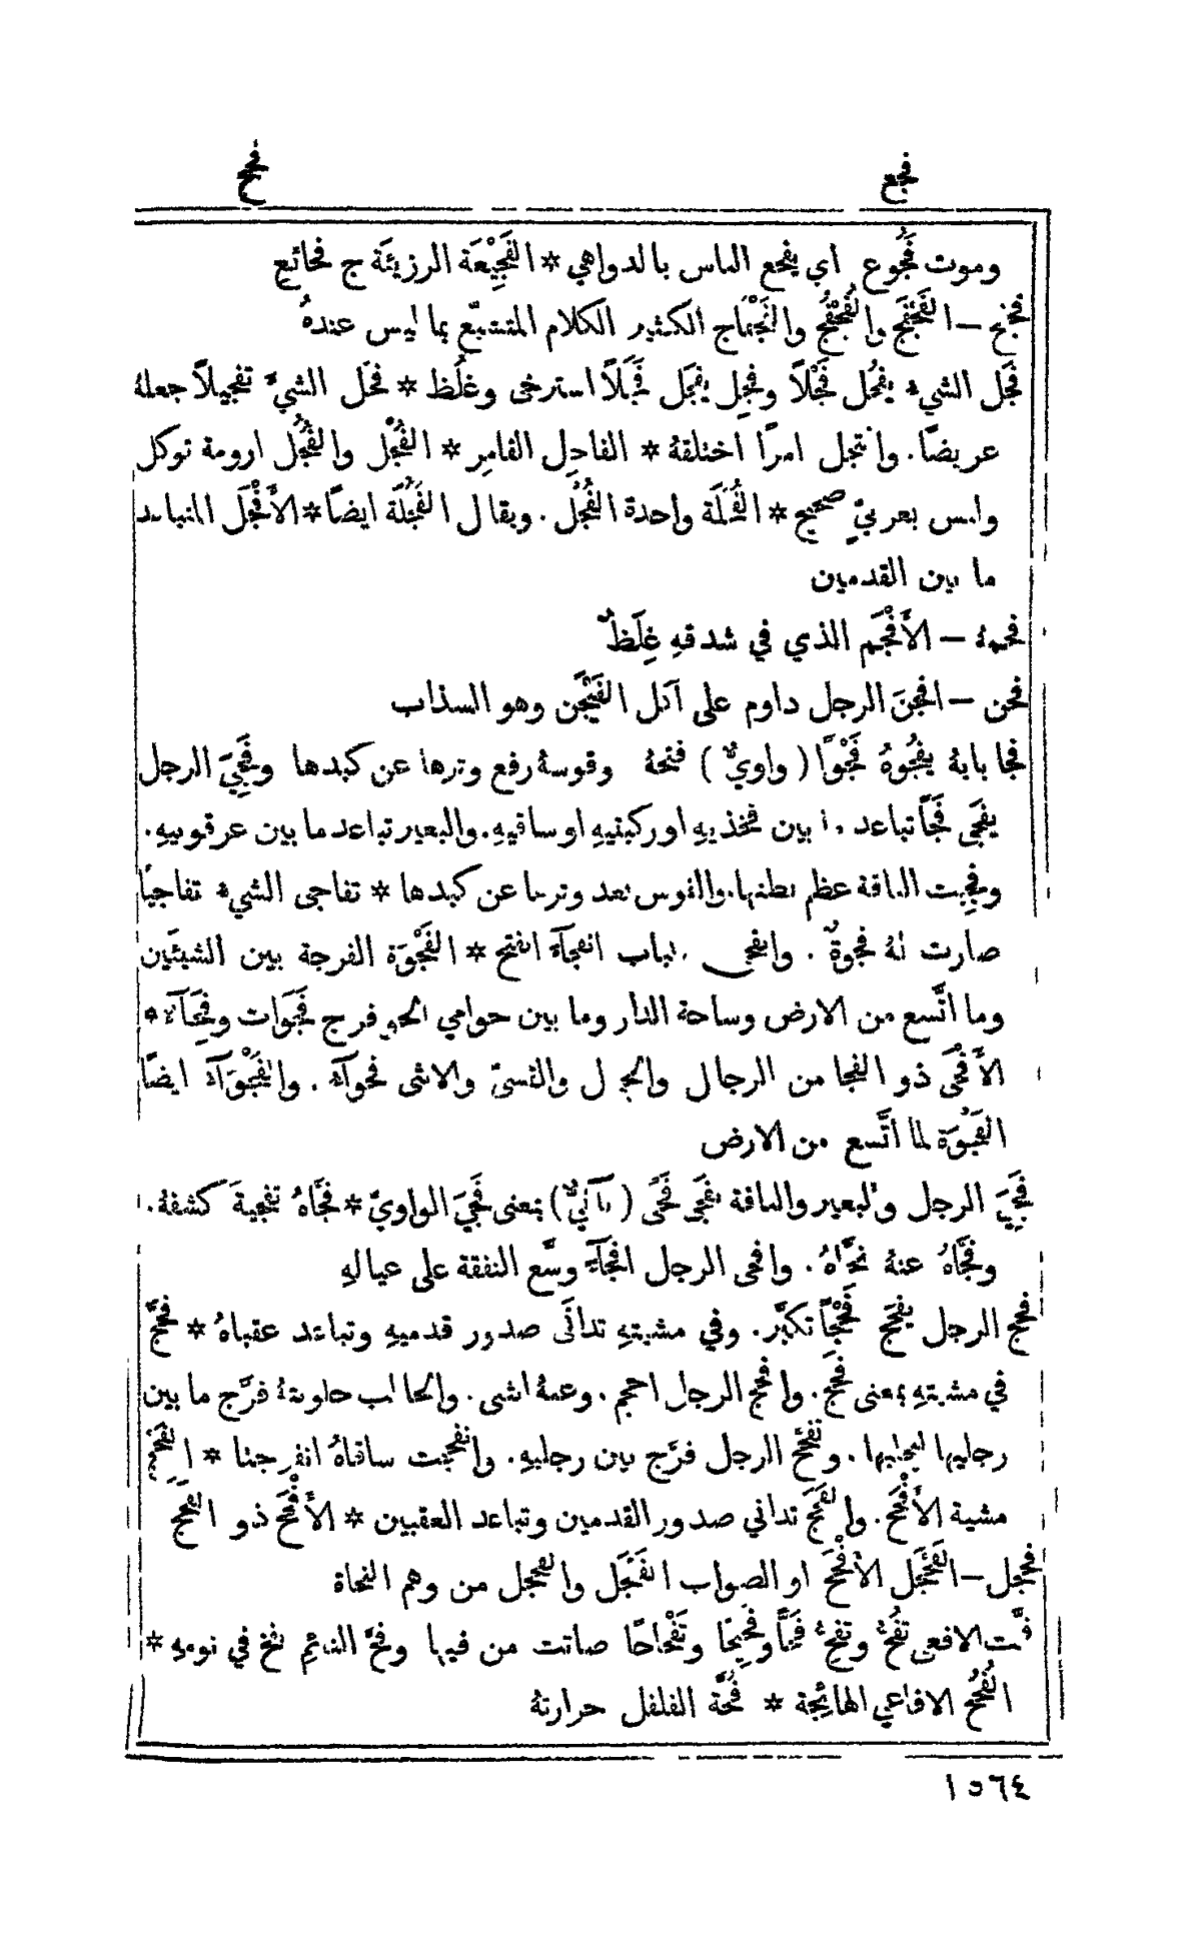 فجع
فحح
وموت فَجُوع اي يفجع الناس بالدواهي * الفَجِيْعَة الرزيئَة ج فجائع
فجفج – الفَجْفَج والفُجْفُج والفَجْفَاج الكثير الكلام المتشبّع بما ليس عندهُ
فَجَل الشيء يفجُل فَجْلاً وفجِل يفجَل فَجَلاً استرخى وغلُظ * فجَّل الشيَّ تفجيلاً جعلهُ
عريضًا. وافتجل امرًا اختلقهُ * الفاجل القامر * الفُجْل والفُجُل ارومة توكل
وليس بعربيّ صحيح * الفُجْلَة واحدة الفُجْل. ويقال الفُجُلَة ايضًا * الأَفْجَل المتباعد
ما بين القدمين
فجمهُ – الأَفْجَم الذي في شدقهِ غِلَظٌ
فجن – افجنَ الرجل داوم على اكل الفَيْجَن وهو السذاب
فجا بابهُ يفجُوهُ فَجْوًا (واويٌّ) فتحهُ وقوسهُ رفع وترها عن كبدها وفَجِيَ الرجل
يفجَى فَجًا تباعد ما بين فخذيهِ او ركبتيهِ او ساقيهِ. والبعير تباعد ما بين عرقوبيهِ.
وفجِيت الناقة عظم بطنها. والقوس بعد وترها عن كبدها * تفاجى الشيء تفاجيًا
صارت لهُ فجوةٌ. وانفجى الباب انفجآءً انفتح * الفَجْوَة الفرجة بين الشيئَين
وما اتَّسع من الارض وساحة الدار وما بين حوامي الحوافر ج فَجَوَات وفِجَآء *
الأَفْجَى ذو الفجا من الرجال والخيل والقسيّ والانثى فجوآء. والفَجْوَآء ايضًا
الفَجْوَة لما اتَّسع من الارض
فَجِيَ الرجل والبعير والناقة يفجَى فَجًى (يآئيٌّ) بمعنى فَجِيَ الواويّ * فجَّاهُ تفجيةً كشفهُ.
وفجَّاهُ عنهُ نحَّاهُ. وافجى الرجل افجآءً وسَّع النفقة على عيالهِ
فحج الرجل يفحَج فَحْجًا تكبَّر. وفي مشيتهِ تدانَى صدور قدميهِ وتباعد عقباهُ * فحَّج
في مشيتهِ بمعنى فحَج. وافحج الرجل احجم. وعنهُ انثنى. والحالب حلوبتهُ فرَّج ما بين
رجليها ليحلبها. وتفحَّج الرجل فرَّج بين رجليهِ. وانفحجت ساقاهُ انفرجتا * الفَحْج
مشية الأَفْحَج. والفَحَج تداني صدور القدمين وتباعد العقبين * الأَفْحَج ذو الفَحَج
فحجل – الفَحْجَل الأَفْحَج او الصواب الفَنْجَل والفحجل من وهم النحاة
فحَّت الافعى تفُحّ وتفِحّ فَحًّا وفَحِيحًا وتَفْحَاحًا صاتت من فيها وفحَّ النائم نفخ في نومهِ *
الفُحُح الافاعي الهائجة * فُحَّة الفلفل حرارتهُ
١٥٦٤